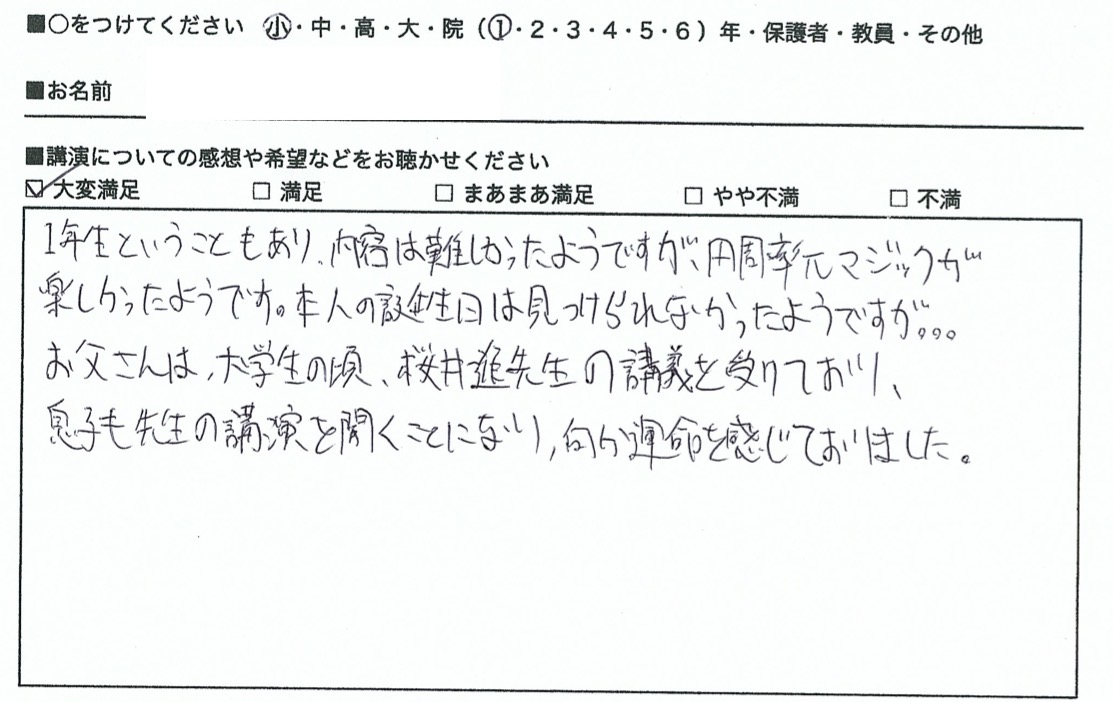 ■○をつけてください 小・中・高・大・院（1・2・3・4・5・6）年・保護者・教員・その他
■お名前
■講演についての感想や希望などをお聴かせください
☑ 大変満足 □ 満足 □ まあまあ満足 □ やや不満 □ 不満
1年生ということもあり、内容は難しかったようですが、円周率πマジックが
楽しかったようです。本人の誕生日は見つけられなかったようですが。。。
お父さんは、大学生の頃、桜井進先生の講義を受けており、
息子も先生の講演を聞くことになり、何か運命を感じておりました。